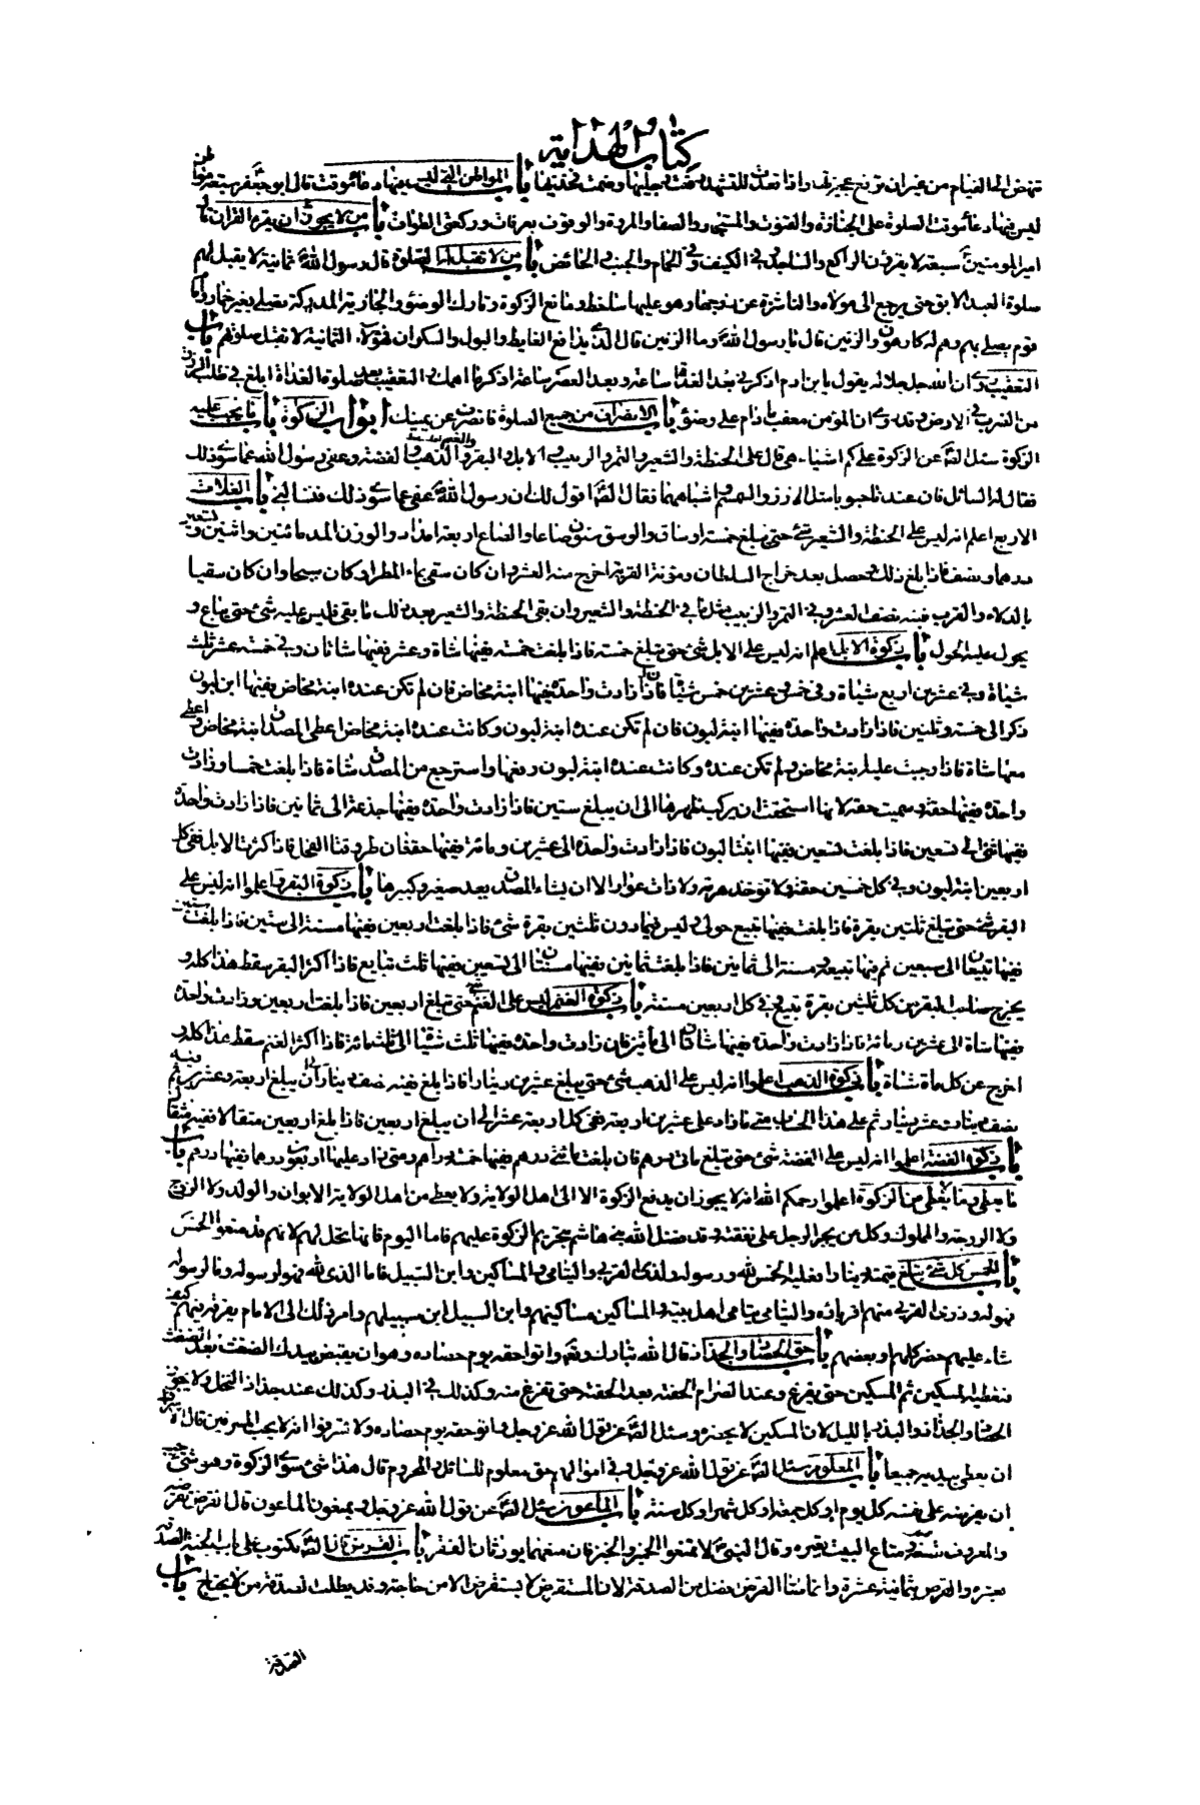 كتاب الهداية
تنهض الى القيام من غير ان ترفع عجيزتك واذا قعدت للتشهد رفعت رجليها وضمت فخذيها باب المواطن التى ليس فيها دعاء موقت قال ابو جعفر سبعة مواطن
ليس فيها دعاء موقت الصلوة على الجنازة والقنوت والمستجار والصفا والمروة والوقوف بعرفات وركعتى الطواف باب من لا يجوز ان يقرء القران قال
امير المؤمنين سبعة لا يقرؤن الراكع والساجد وفى الكنيف وفى الحمام والجنب والحائض باب من لا تقبل له الصلوة قال رسول الله ثمانية لا يقبل لهم
صلوة العبد الابق حتى يرجع الى مولاه والناشزة عن زوجها وهو عليها ساخط ومانع الزكوة وتارك الوضوء والجارية المدركة تصلى بغير خمار وامام
قوم يصلى بهم وهم له كارهون والزنين قال يا رسول الله وما الزنين قال الذى يدافع الغايط والبول والسكران فهؤلاء الثمانية لا تقبل صلوتهم باب
التعقيب ان الله جل جلاله يقول يا بن ادم اذكرنى بعد الغداة ساعة وبعد العصر ساعة اكفك ما اهمك والتعقيب بعد صلوة الغداة ابلغ فى طلب الرزق
من الضرب فى الارض وقد روى ان المؤمن معقب ما دام على وضوئه باب الانصراف من جميع الصلوة فانصرف عن يمينك ابواب الزكوة باب ما يجب عليه
الزكوة سئل الص عن الزكوة على كم اشياء هى قال على الحنطة والشعير والتمر والزبيب والابل والبقر والغنم والذهب والفضة وعفى رسول الله عما سوى ذلك
فقال له السائل فان عندنا حبوبا مثل الارز والسمسم واشباههما فقال الص اقول لك ان رسول الله عفى عما سوى ذلك فتسالنى باب الغلات
الاربع اعلم انه ليس على الحنطة والشعير شئ حتى يبلغ خمسة اوساق والوسق ستون صاعا والصاع اربعة امداد والوزن المد مائتين واثنين وتسعين
درهما ونصف فاذا بلغ ذلك وحصل بعد خراج السلطان ومؤنة القرية اخرج منه العشر ان كان سقى بماء المطر او كان سيحا وان كان سقيا
بالدلاء والغرب ففيه نصف العشر وفى التمر والزبيب مثل ما فى الحنطة والشعير وان بقى الحنطة والشعير بعد ذلك ما بقى فليس عليه شئ حتى يباع و
يحول عليه الحول باب زكوة الابل اعلم انه ليس على الابل شئ حتى تبلغ خمسة فاذا بلغت خمسة ففيها شاة وعشر ففيها شاتان وفى خمسة عشر ثلث
شياة وفى عشرين اربع شياة وفى خمس وعشرين خمس شياة فاذا زادت واحدة ففيها ابنة مخاض فان لم تكن عنده ابنة مخاض ففيها ابن لبون
ذكر الى خمسة وثلثين فاذا زادت واحدة ففيها ابنة لبون فان لم تكن عنده ابنة لبون وكانت عنده ابنة مخاض اعطى المصدق ابنة مخاض واعطى
معها شاة فاذا وجبت عليه ابنة مخاض ولم تكن عنده وكانت عنده ابنة لبون دفعها واسترجع من المصدق شاة فاذا بلغت خمسا وزادت
واحدة ففيها حقة وسميت حقة لانها استحقت ان يركب ظهرها الى ان يبلغ ستين فاذا زادت واحدة ففيها جذعة الى ثمانين فاذا زادت واحدة
ففيها ثنى الى تسعين فاذا بلغت تسعين ففيها ابنتا لبون فاذا زادت واحدة الى عشرين ومائة ففيها حقتان طروقتا الفحل فاذا كثرت الابل ففى كل
اربعين ابنة لبون وفى كل خمسين حقة ولا تؤخذ هرمة ولا ذات عوار الا ان يشاء المصدق ويعد صغيرها وكبيرها باب زكوة البقر اعلموا انه ليس على
البقر شئ حتى تبلغ ثلثين بقرة فاذا بلغت ففيها تبيع حولى وليس فيها دون ثلثين بقرة شئ فاذا بلغت اربعين ففيها مسنة الى ستين فاذا بلغت ستين
ففيها تبيعان الى سبعين ثم فيها تبيعة ومسنة الى ثمانين فاذا بلغت ثمانين ففيها مسنتان الى تسعين ففيها ثلث تبايع فاذا اكثر البقر سقط هذا كله و
يخرج صاحب البقر من كل ثلثين بقرة تبيع وفى كل اربعين مسنة باب زكوة الغنم ليس على الغنم شئ حتى تبلغ اربعين فاذا بلغت اربعين وزادت واحدة
ففيها شاة الى عشرين ومائة فاذا زادت واحدة ففيها شاتان الى مأتين فان زادت واحدة ففيها ثلث شياة الى ثلثمائة فاذا اكثر الغنم سقط هذا كله و
اخرج عن كل مأة شاة باب زكوة الذهب اعلموا انه ليس على الذهب شئ حتى يبلغ عشرين دينارا فاذا بلغ ففيه نصف دينار الى ان يبلغ اربعة وعشرين ففيه
نصف دينار وعشر دينار ثم على هذا الحساب متى ما زاد على عشرين اربعة ففى كل اربعة عشر الى ان يبلغ اربعين فاذا بلغ اربعين مثقالا ففيه مثقال
باب زكوة الفضة اعلموا انه ليس على الفضة شئ حتى تبلغ مائتى درهم فان بلغت مائتى درهم ففيها خمسة دراهم ومتى زاد عليها اربعون درهما ففيها درهم باب
ما يعطى وما يعطى من الزكوة اعلموا رحمكم الله انه لا يجوز ان يدفع الزكوة الا الى اهل الولاية ولا يعطى من اهل الولاية الابوان والولد ولا الزوج
ولا الزوجة والمملوك وكل من يجبر الرجل على نفقته وقد فضل الله بنى هاشم بتحريم الزكوة عليهم فاما اليوم فانها تحل لهم لانهم قد منعوا الخمس
باب الخمس كل شئ يبلغ قيمته دينارا فعليه الخمس لله ورسوله ولذى القربى واليتامى والمساكين وابن السبيل فاما الذى لله فهو لرسوله وما لرسوله
فهو له وذوى القربى منهم اقرباؤه واليتامى يتامى اهل بيته والمساكين مساكينهم وابن السبيل ابن سبيلهم وامر ذلك الى الامام يفرقه فيهم كيف
شاء عليهم حضر كلهم او بعضهم باب حق الحصاد والجذاذ قال الله تبارك وتعالى واتوا حقه يوم حصاده وهو ان يقبض بيدك الضغث بعد الضغث
فتعطيه المسكين ثم المسكين حتى يفرغ وعند الصرام الحفنة بعد الحفنة حتى تفرغ منه وكذلك فى البذر وكذلك عند جذاذ النخل ولا يجوز
الحصاد والجذاذ والبذر بالليل لان المسكين لا يحضره وسئل الص عن قول الله عز وجل واتوا حقه يوم حصاده ولا تسرفوا انه لا يحب المسرفين قال الاسراف
ان يعطى بيديه جميعا باب المعلوم سئل الص عن قول الله عز وجل وفى اموالهم حق معلوم للسائل والمحروم قال هذا شئ سوى الزكوة وهو شئ يجب
ان يفرضه على نفسه كل يوم او كل جمعة او كل شهر او كل سنة باب الماعون سئل الص عن قول الله عز وجل ويمنعون الماعون قال القرض تقرضه
والمعروف تصنعه ومتاع البيت تعيره وقال النبى لا تمنعوا الخمير والخبز فان منعهما يورثان الفقر باب القرض قال الص مكتوب على باب الجنة الصدقة
بعشرة والقرض بثمانية عشرة وانما صار القرض افضل من الصدقة لان المستقرض لا يستقرض الا من حاجة وقد يطلب الصدقة من لا يحتاج باب
الصدقة